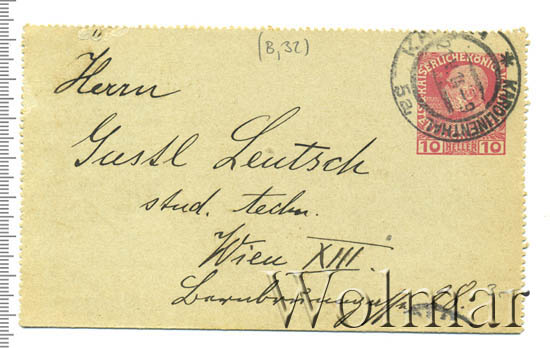 (B, 32)
KAISERLICHE KÖNIGL
KAROLINENTHAL
10 HELLER 10
Herrn
Gustl Leutsch
stud. techn.
Wien XIII.
Wolmar